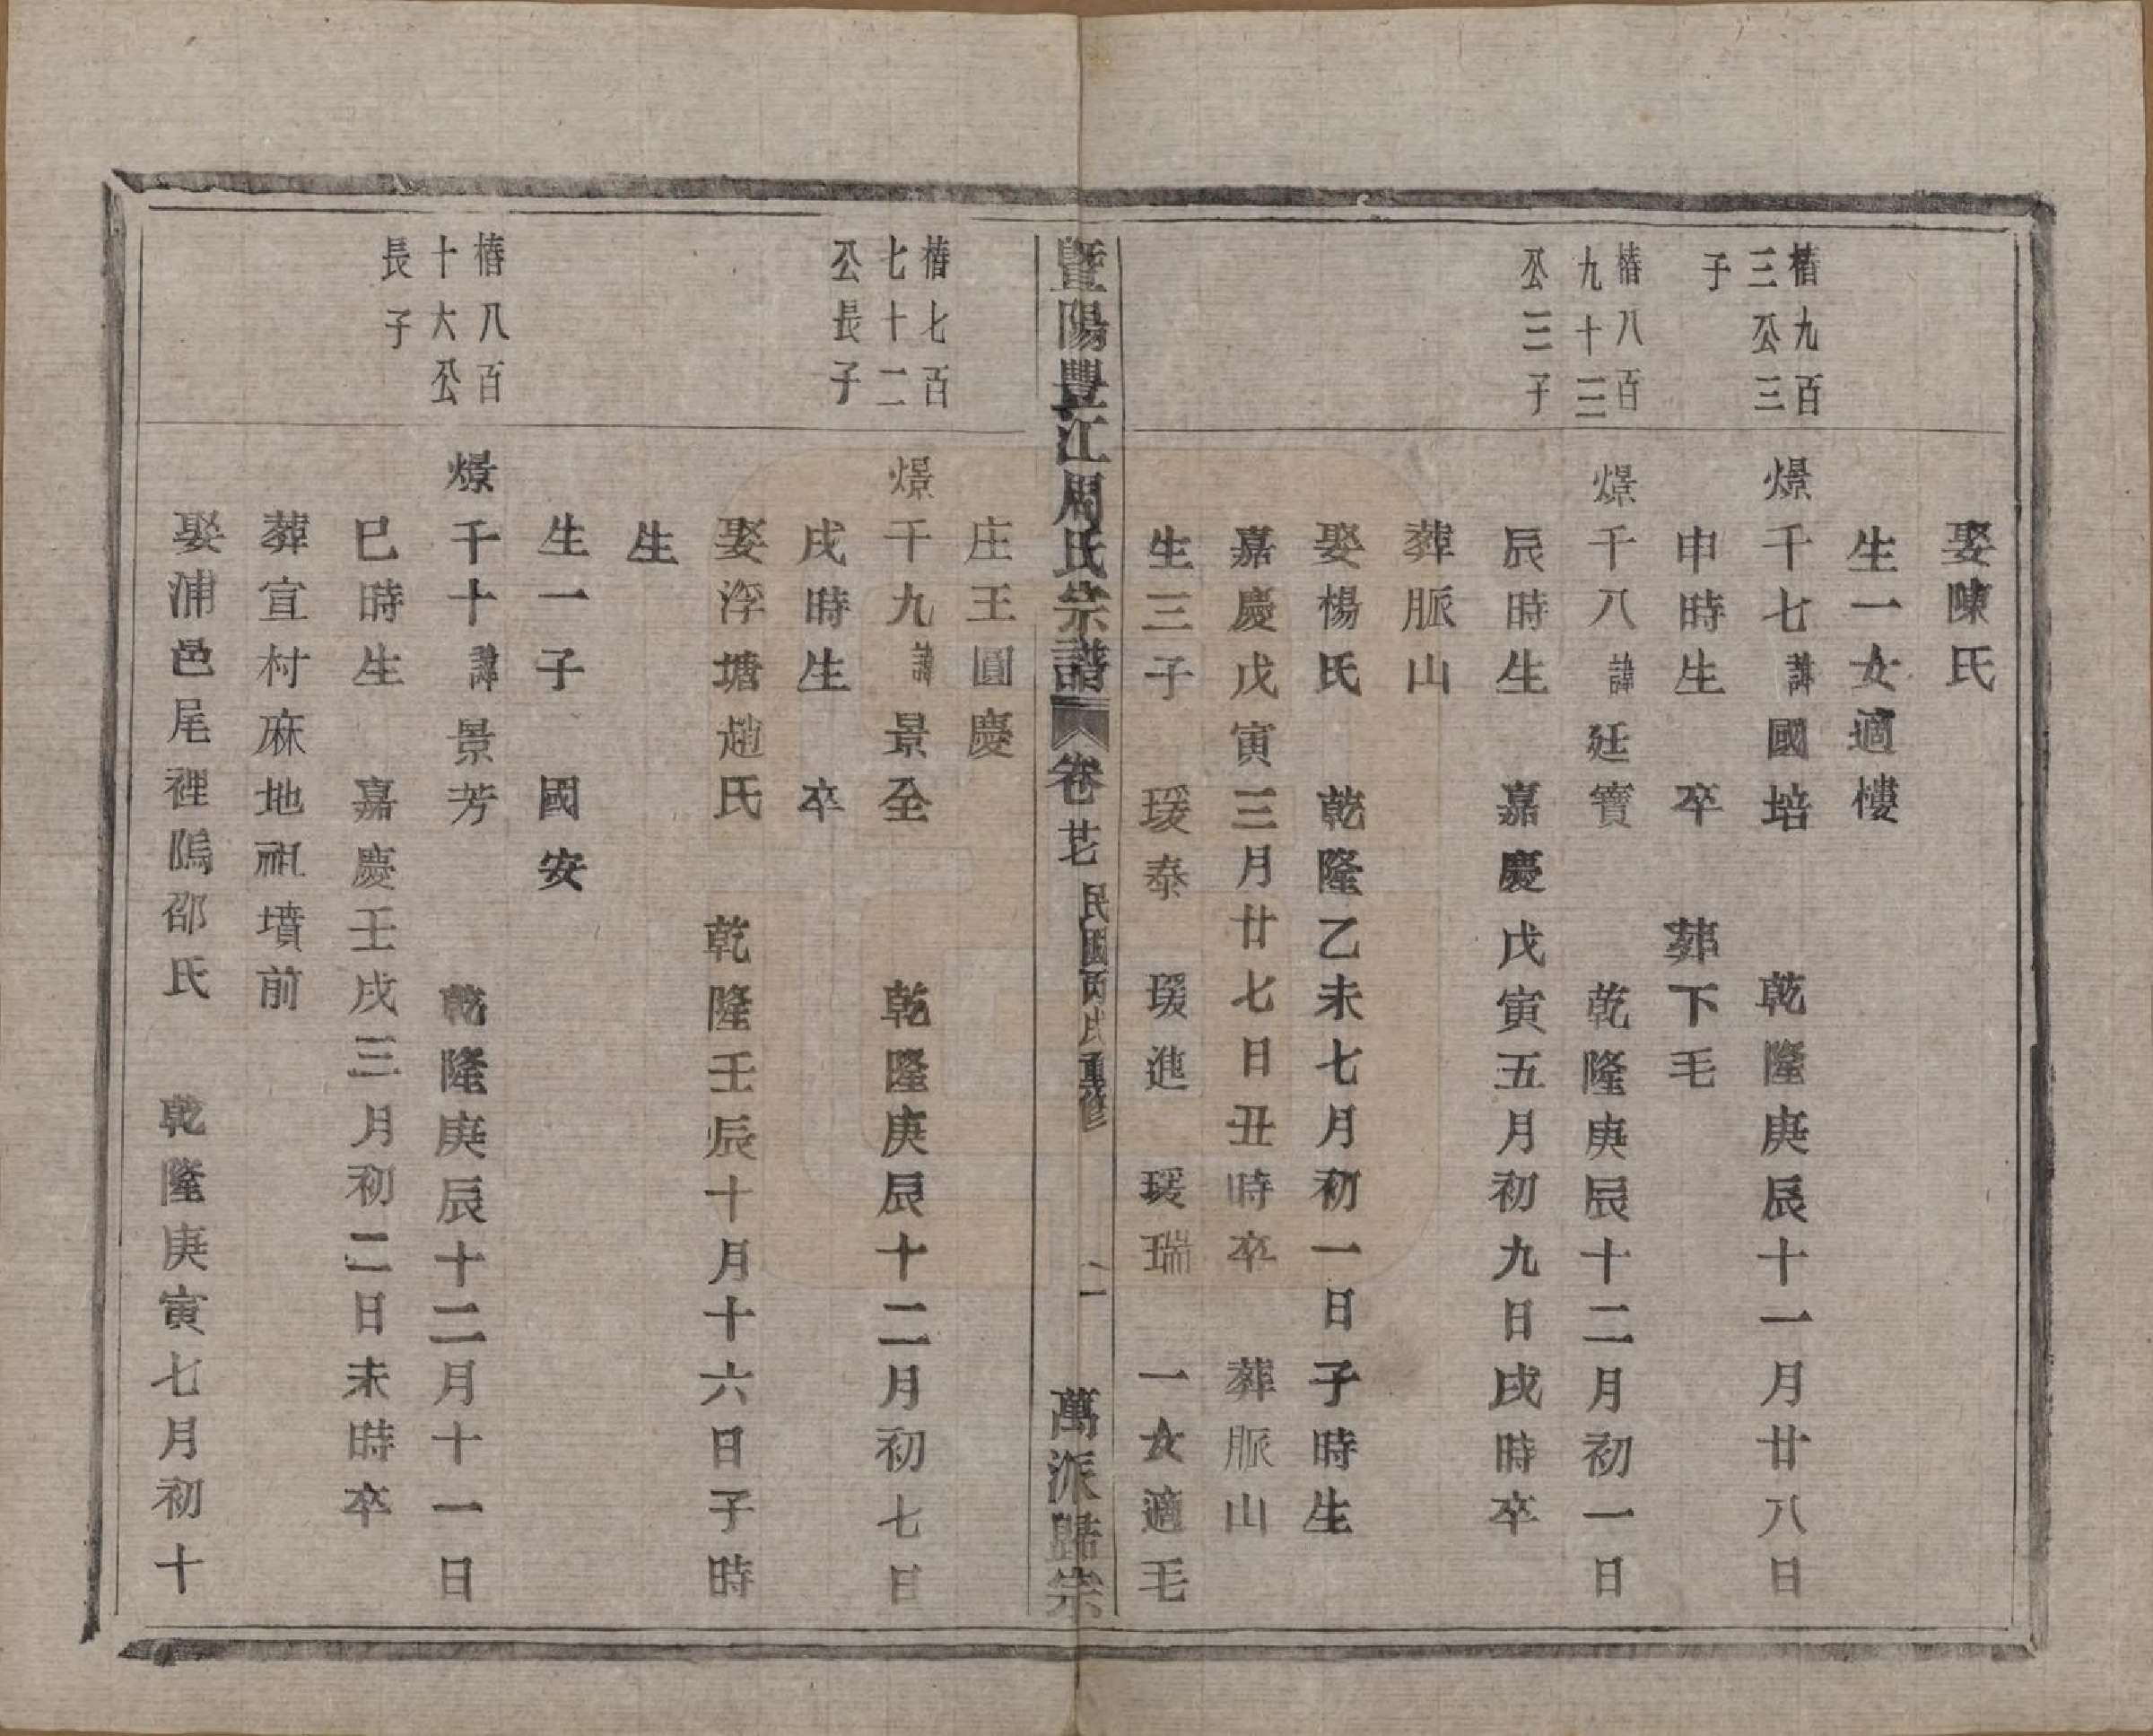 娶陳氏
生一女適樓
椿九百
三公三
子
熼千七諱國培　乾隆庚辰十一月廿八日
申時生　卒　葬下毛
椿八百
九十三
公三子
熼千八諱廷寶　乾隆庚辰十二月初一日
辰時生　嘉慶戊寅五月初九日戌時卒
葬脈山
娶楊氏　乾隆乙未七月初一日子時生
嘉慶戊寅三月廿七日丑時卒　葬脈山
生三子　瑗泰　瑗進　瑗瑞　一女適毛
暨陽豐江周氏宗譜　卷　民國　戌重修　萬派歸宗
庄王圓慶
椿七百
七十二
公長子
熼千九諱景全　乾隆庚辰十二月初七日
戌時生　卒
娶浮塘趙氏　乾隆壬辰十月十六日子時
生
生一子　國安
椿八百
十六公
長子
熼千十諱景芳　乾隆庚辰十二月十一日
巳時生　嘉慶壬戌三月初二日未時卒
葬宣村麻地祖墳前
娶浦邑尾裡隖邵氏　乾隆庚寅七月初十